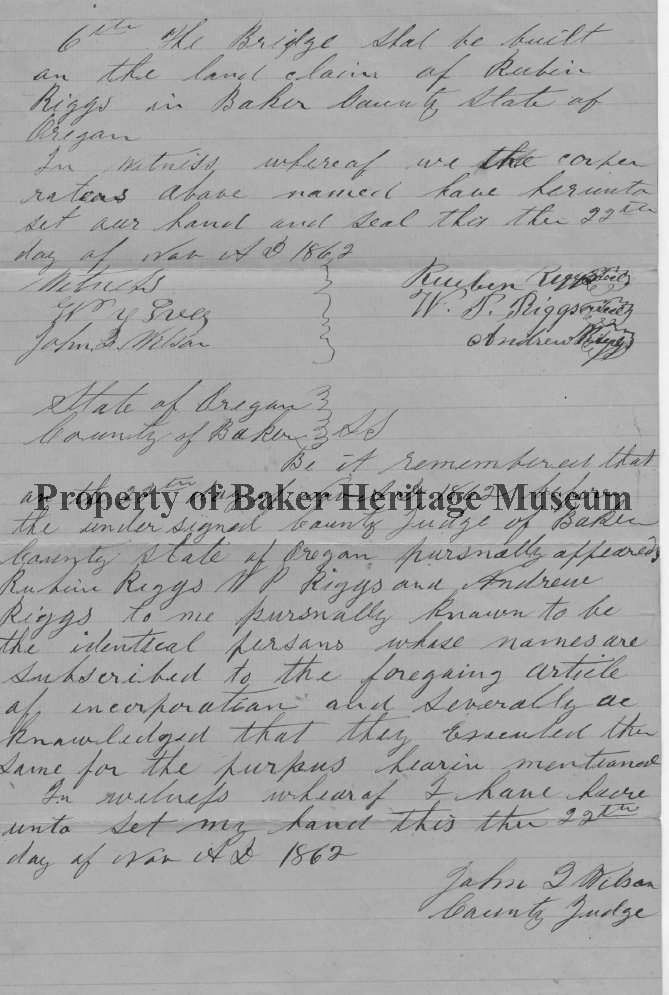 6th The Bridge shal be built
on the land claim of Rubin
Riggs in Baker County State of
Oregan
In Witniss whereof we the corper
rators above named have herunto
set our hand and seal this the 22th
day of Nov A D 1862
Witness
Reuben Riggs seal
W Y
W. P. Riggs seal
John Q. Wilson
Andrew Riggs
State of Oregan
County of Baker SS
Be it remembered that
on the 22th day of Nov A D 1862 before
Property of Baker Heritage Museum
the undersigned County Judge of Baker
County State of Oregan pursnally appeared
Rubin Riggs W P Riggs and Andrew
Riggs to me pursnally known to be
the identical persons whose names are
subscribed to the foregoing article
of incorporation and severally ac
knowledged that they Executed the
same for the purpus hearin mentioned
In witness whearof I have heare
unto set my hand this the 22th
day of Nov A D 1862
John Q Wilson
County Judge